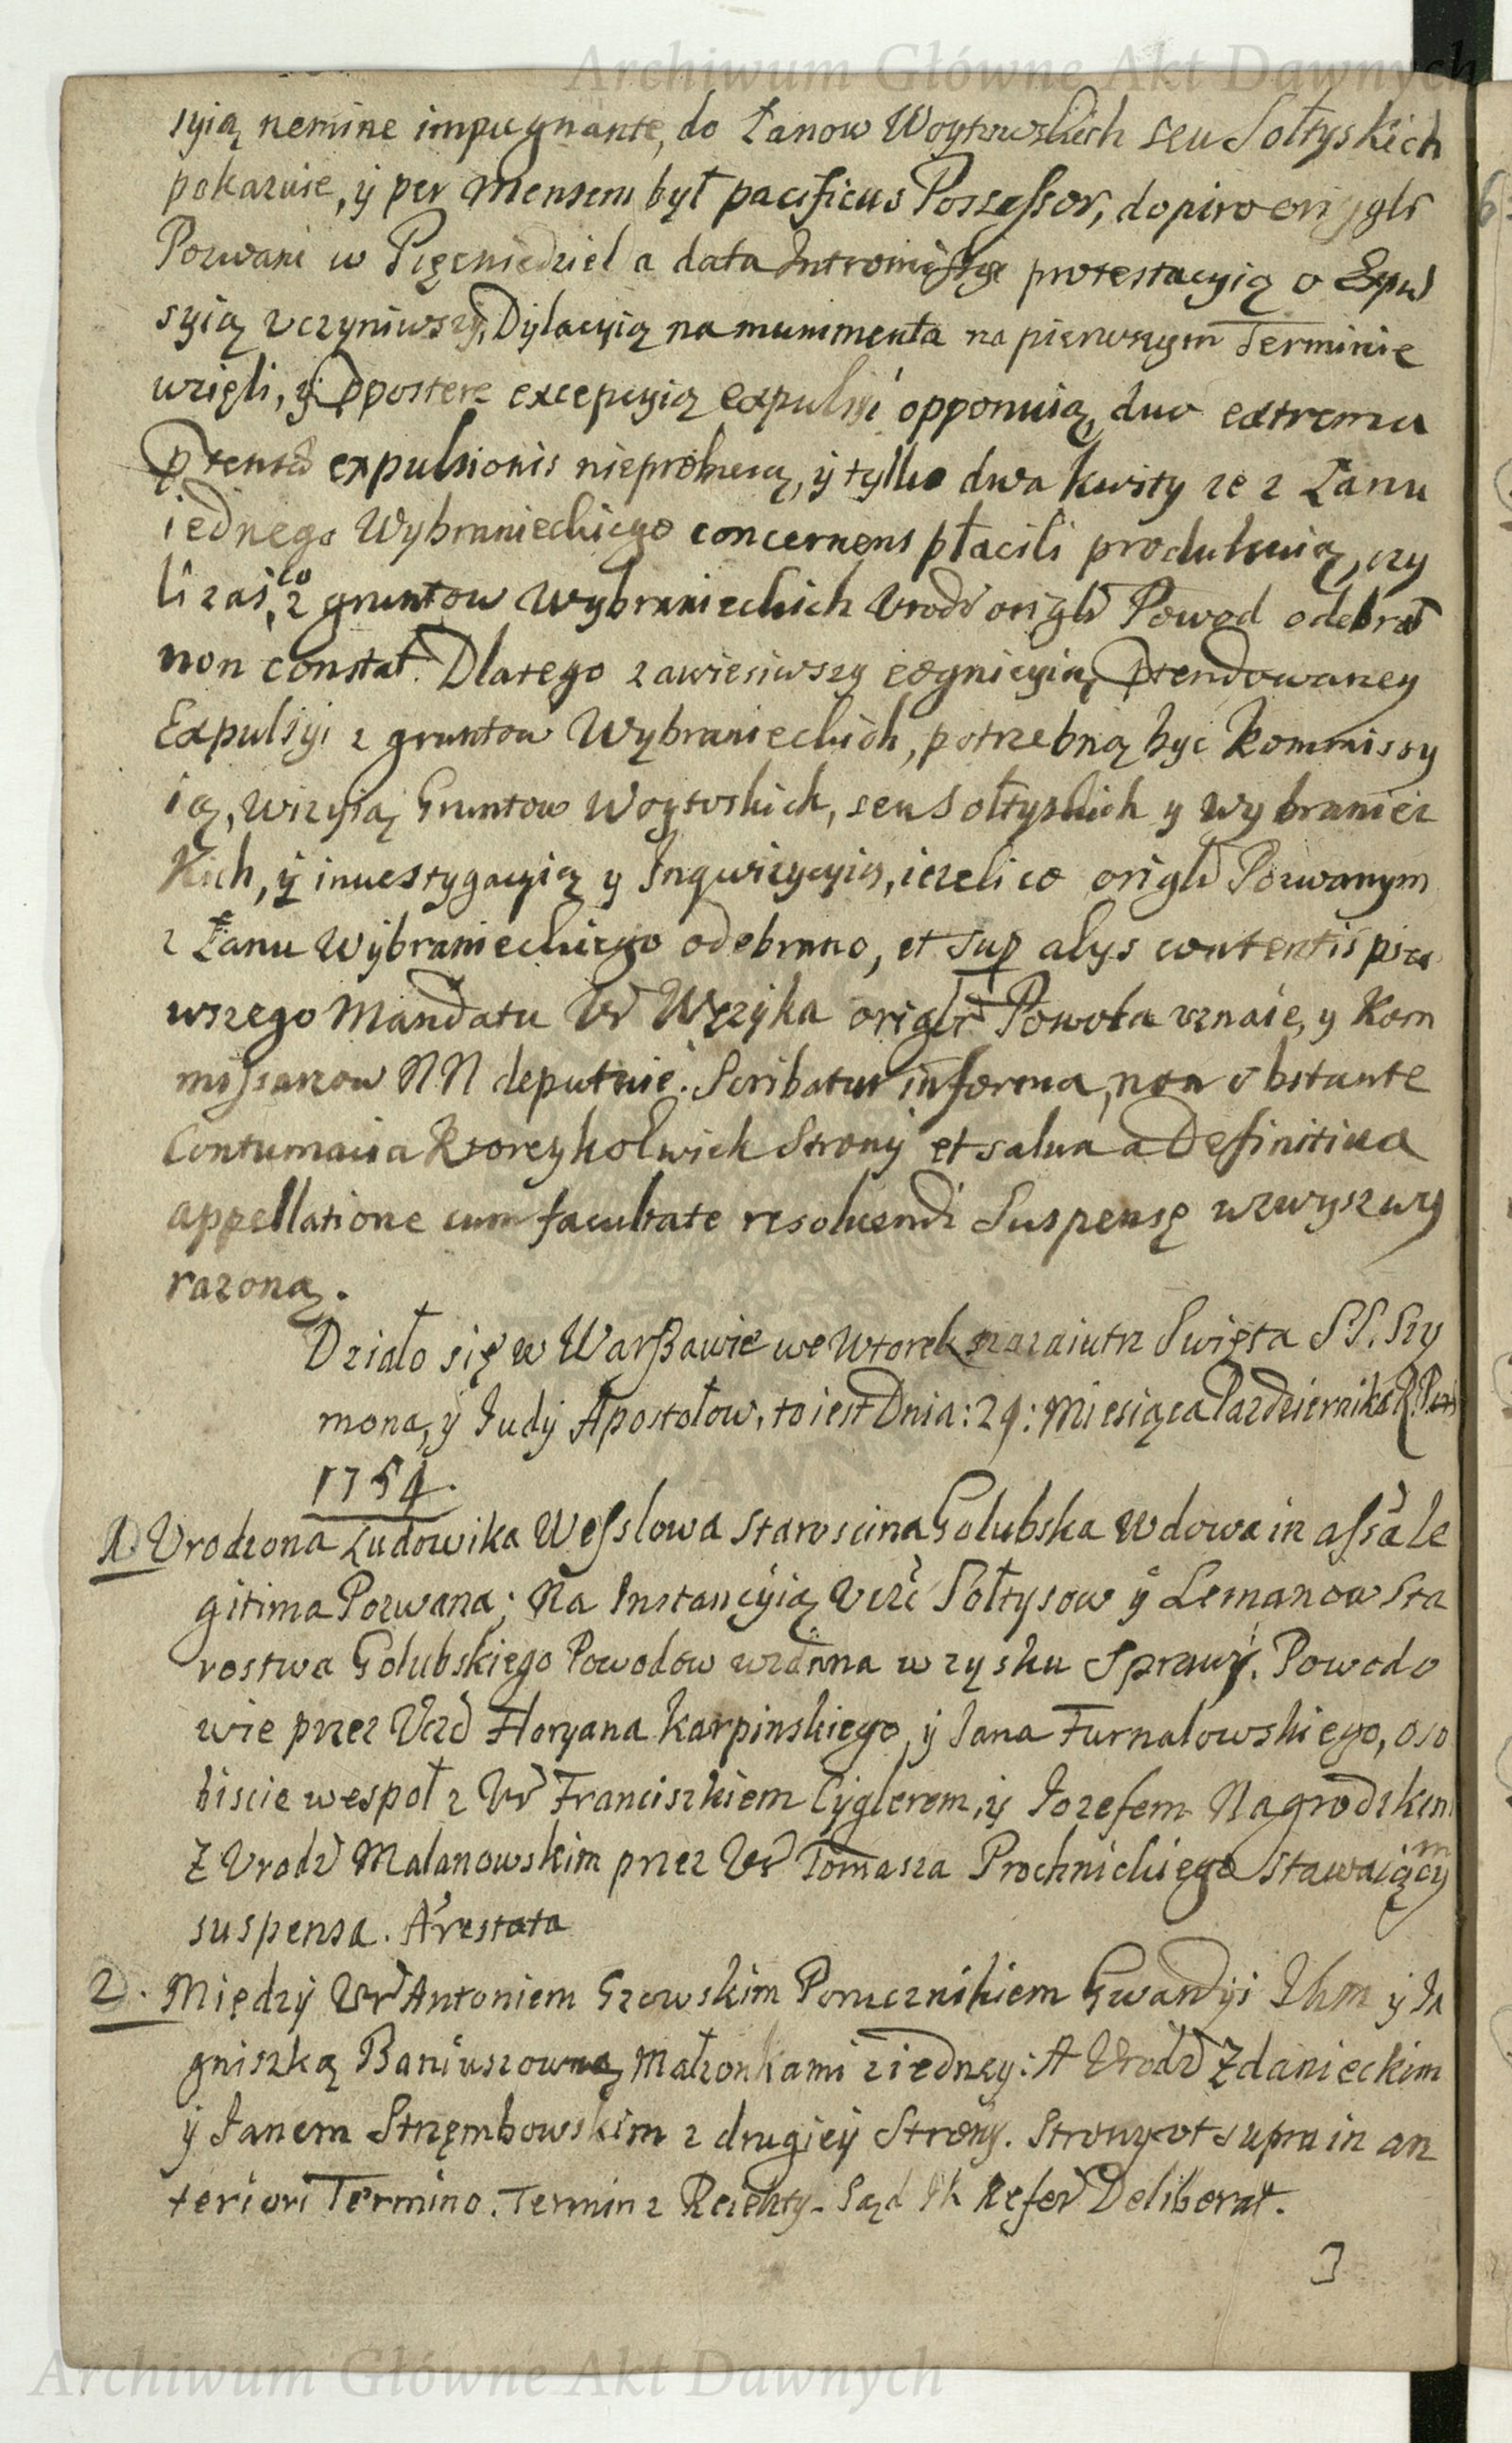 Archiwum Główne Akt Dawnych
syią nemine impugnante, do Łanow Woytowskich seu Sołtyskich
pokazuie, ÿ per Mensem był pacificus Possessor, dopiro origls
Pozwani w Pięcniedziel a data Intromissyi protestacyią o Expul
syią vczyniwszy, Dylacyią na munimenta na pierwszym Terminie
wzięli, ÿ postere excepcyią expulsyi opponuią, duo extrema
ptensæ expulsionis nieprobuią, ÿ tylko dwa kwity ze z Łanu
iednego Wybranieckiego concernens płacili produkuią, czy
li zaś co z gruntow Wybranieckich Vrodz origls Powod odebrał
non constat. Dlatego zawiesiwszy cognicyią ptendowaney
Expulsyi z gruntow Wybranieckich, potrzebną być Kommissy
ią, wizyią Gruntow Woytoskich, seu Sołtyskich y wybraniec
Kich, ÿ inuestygacyią y Inqwizycyią, iezeli co origls Pozwanym
z Łanu Wybranieckiego odebrano, et sup alys contentis pier
wszego Mandatu Vr Węzyka origls Powoda vznaie, y Kom
missarzow NN deputuie. Scribatur in forma, non obstante
Contumacia Ktoreykolwiek Strony et salua a Definitiua
appellatione cum facultate resoluendi Suspensę wzwysz wy
razoną.
Działo się w Warszawie we Wtorek nazaiutrz Swięta SS. Szy
mona, ÿ Judy Apostołow, to iest Dnia: 29: Miesiąca Pazdziernika R. Pan
1754.
1) Vrodzona Ludowika Wesslowa Staroscina Golubska Wdowa in assa le
gitima Pozwana; Na Instancyią Vczc Sołtysow ÿ Lemanow Sta
rostwa Golubskiego Powodow wzdana w zysku Sprawy. Powodo
wie przez Vrd Floryana Karpinskiego, ÿ Jana Furnalowskiego, oso
biscie wespoł z Vr Franciszkiem Cyglerem, ÿ Jozefem Nagrodzkim
Z Vrodz Malanowskim przez Vr Tomasza Prochnickiego stawaiącym
suspensa. Arestata
2). Między Vr Antoniem Gzowskim Porucznikiem Gwardyi Jkm ÿ Ja
gniszką Baniuszowną Małzonkami z iedney: A Vrodz Zdanieckim
ÿ Janem Strzębowskim z drugiey Strony. Strony vt supra in an
teriori Termino. Termin z Rezekty. Sąd Jk Refer Deliberat.
3
Archiwum Główne Akt Dawnych